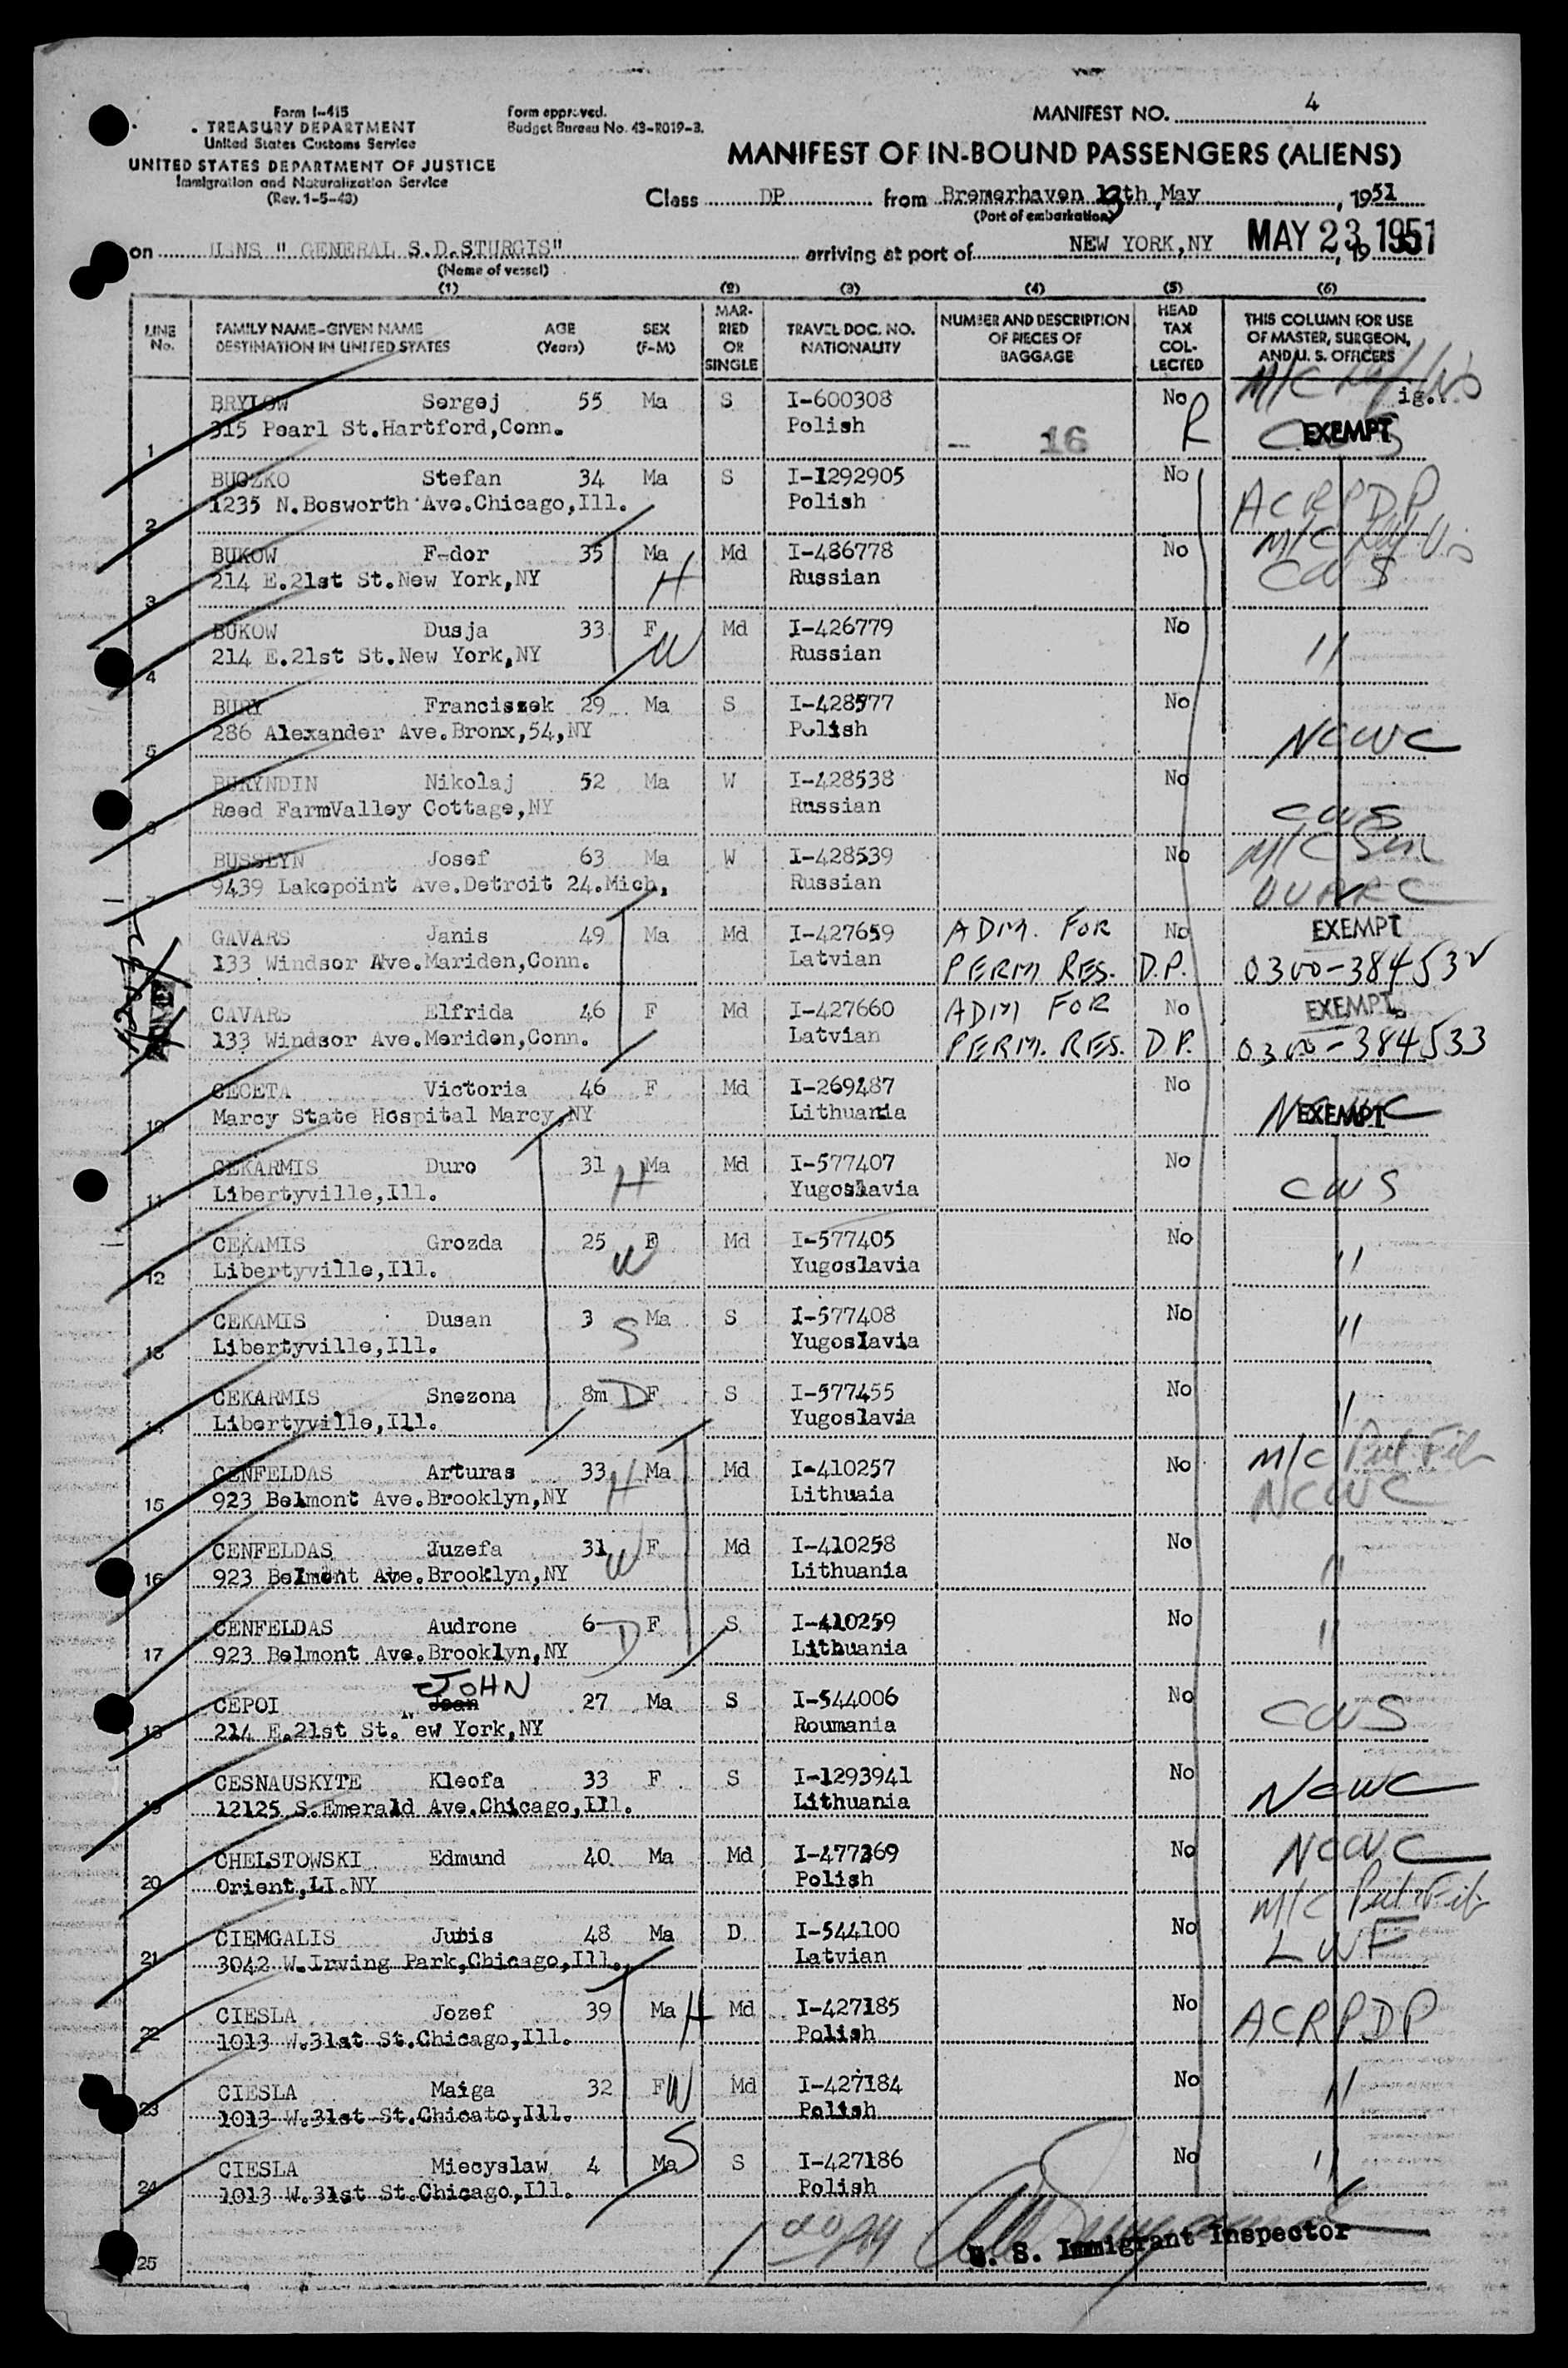 Form I-415
TREASURY DEPARTMENT
United States Customs Service
UNITED STATES DEPARTMENT OF JUSTICE
Immigration and Naturalization Service
(Rev. 1-5-43)
Form approved.
Budget Bureau No. 43-R019-3.
MANIFEST NO. 4
MANIFEST OF IN-BOUND PASSENGERS (ALIENS)
Class DP from Bremerhaven 13th, May, 1951
(Port of embarkation)
on USNS " GENERAL S.D.STURGIS" arriving at port of NEW YORK,NY MAY 23 1951, 19
(Name of vessel)
(1) (2) (3) (4) (5) (6)
LINE No. FAMILY NAME-GIVEN NAME DESTINATION IN UNITED STATES AGE (Years) SEX (F-M) MARRIED OR SINGLE TRAVEL DOC. NO. NATIONALITY NUMBER AND DESCRIPTION OF PIECES OF BAGGAGE HEAD TAX COLLECTED THIS COLUMN FOR USE OF MASTER, SURGEON, AND U. S. OFFICERS
M/C
BRYLOW Sergej 55 Ma S I-600308 No ig..
1 315 Pearl St.Hartford,Conn. Polish 16 R CWS EXEMPT
BUCZKO Stefan 34 Ma S I-1292905 No
2 1235 N.Bosworth Ave.Chicago,Ill. Polish ACRPDP
BUKOW F-dor 35 Ma Md I-486778 No M/C
3 214 E.21st St.New York,NY H Russian CWS
BUKOW Dusja 33 F Md I-426779 No
4 214 E.21st St.New York,NY W Russian "
BURY Franciszek 29 Ma S I-428577 No
5 286 Alexander Ave.Bronx,54,NY Polish NCWC
BURYNDIN Nikolaj 52 Ma W I-428538 No
6 Reed FarmValley Cottage,NY Russian CWS
BUSSLYN Josef 63 Ma W I-428539 No M/C Sen
9439 Lakepoint Ave.Detroit 24.Mich, Russian UUARC
GAVARS Janis 49 Ma Md I-427659 ADM. FOR No EXEMPT
133 Windsor Ave.Mariden,Conn. Latvian PERM RES. D.P. 0300-384532
CAVARS Elfrida 46 F Md I-427660 ADM FOR No EXEMPT
133 Windsor Ave.Meriden,Conn. Latvian PERM. RES. D.P. 0300-384533
CECETA Victoria 46 F Md I-269487 No
10 Marcy State Hospital Marcy,NY Lithuania NCWC EXEMPT
CEKARMIS Duro 31 H Ma Md I-577407 No
11 Libertyville,Ill. Yugoslavia CWS
CEKAMIS Grozda 25 F Md I-577405 No
12 Libertyville,Ill. W Yugoslavia "
CEKAMIS Dusan 3 S Ma S I-577408 No
13 Libertyville,Ill. Yugoslavia "
CEKARMIS Snezona 8m D F S I-577455 No
14 Libertyville,Ill. Yugoslavia "
CENFELDAS Arturas 33 H Ma Md I-410257 No M/C
15 923 Belmont Ave.Brooklyn,NY Lithuaia NCWC
CENFELDAS Juzefa 31 W F Md I-410258 No
16 923 Belmont Ave.Brooklyn,NY Lithuania "
CENFELDAS Audrone 6 D F S I-410259 No
17 923 Belmont Ave.Brooklyn,NY Lithuania "
JOHN
CEPOI Jean 27 Ma S I-544006 No
18 214 E.21st St. ew York,NY Roumania CWS
CESNAUSKYTE Kleofa 33 F S I-1293941 No
19 12125 S.Emerald Ave.Chicago,Ill. Lithuania NCWC
CHELSTOWSKI Edmund 40 Ma Md I-477369 No NCWC
20 Orient,LI.NY Polish
M/C
CIEMGALIS Jubis 48 Ma D I-544100 No
21 3042 W.Irving Park,Chicago,Ill. Latvian LWF
CIESLA Jozef 39 Ma H Md I-427185 No
22 1013 W.31st St.Chicago,Ill. Polish ACRPDP
CIESLA Maiga 32 F W Md I-427184 No
23 1013 W.31st St.Chicato,Ill. Polish "
CIESLA Miecyslaw 4 Ma S S I-427186 No
24 1013 W.31st St.Chicago,Ill. Polish "
25 U. S. Immigrant Inspector